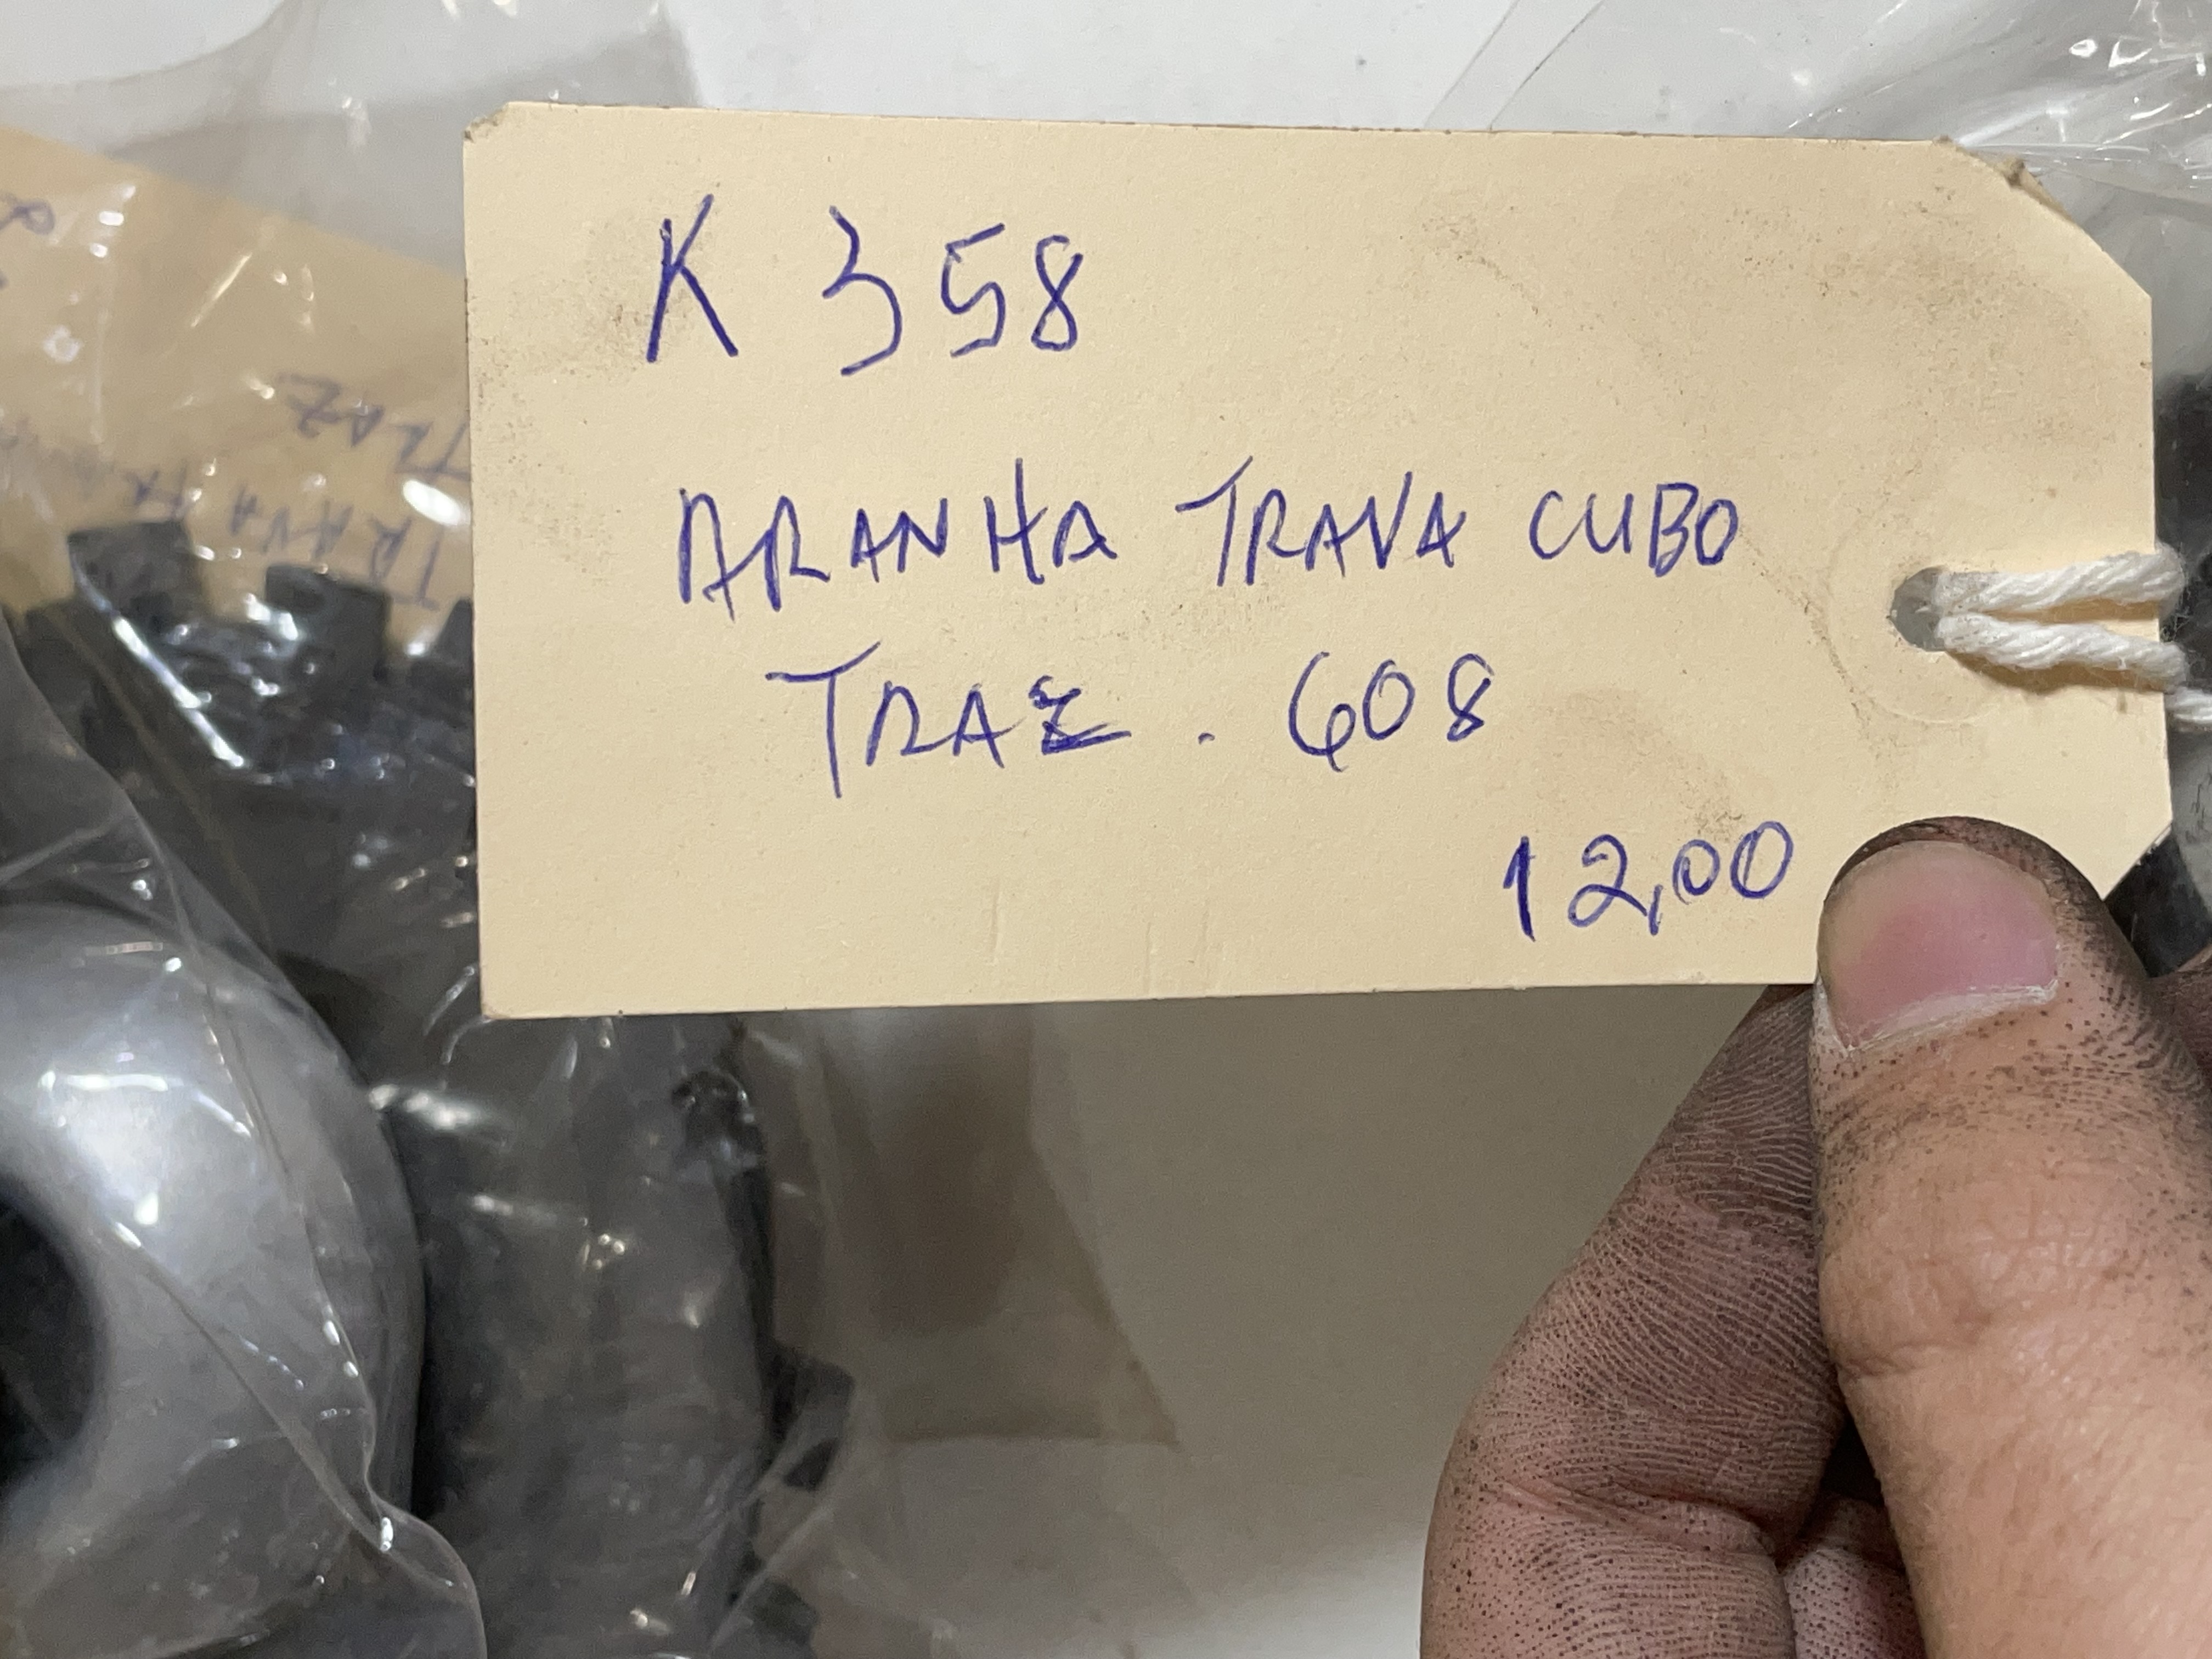 K 358
ARANHA TRAVA CUBO
TRAZ . 608
12,00
TRAVA
TRAZ